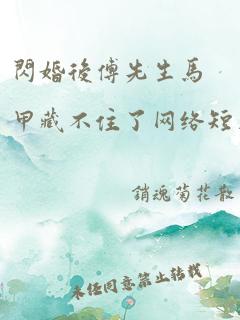 閃婚後傅先生馬
甲藏不住了网络短
銷魂菊花散
未经同意禁止转载